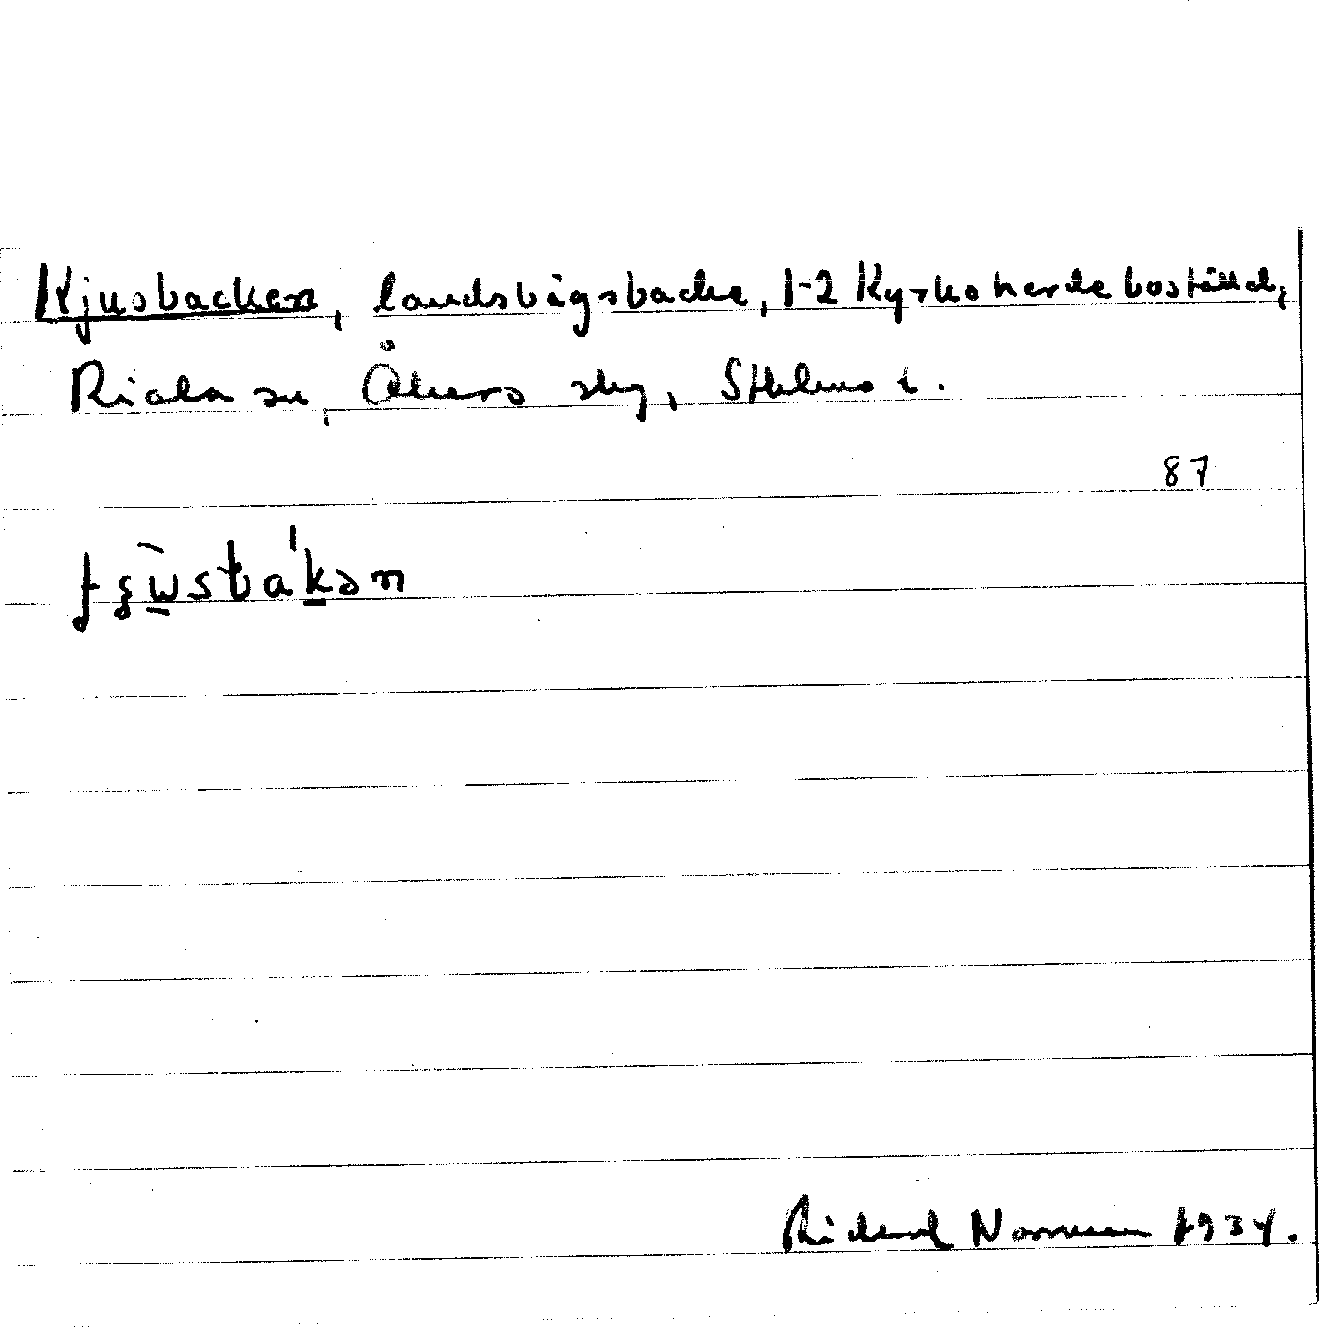 Kjusbacken, landsvägsbacke, 1-2 Kyrkoherdebostället,
Riala sn, Åkers skg, Sthlms l.
87
Richard Norrman 1934.